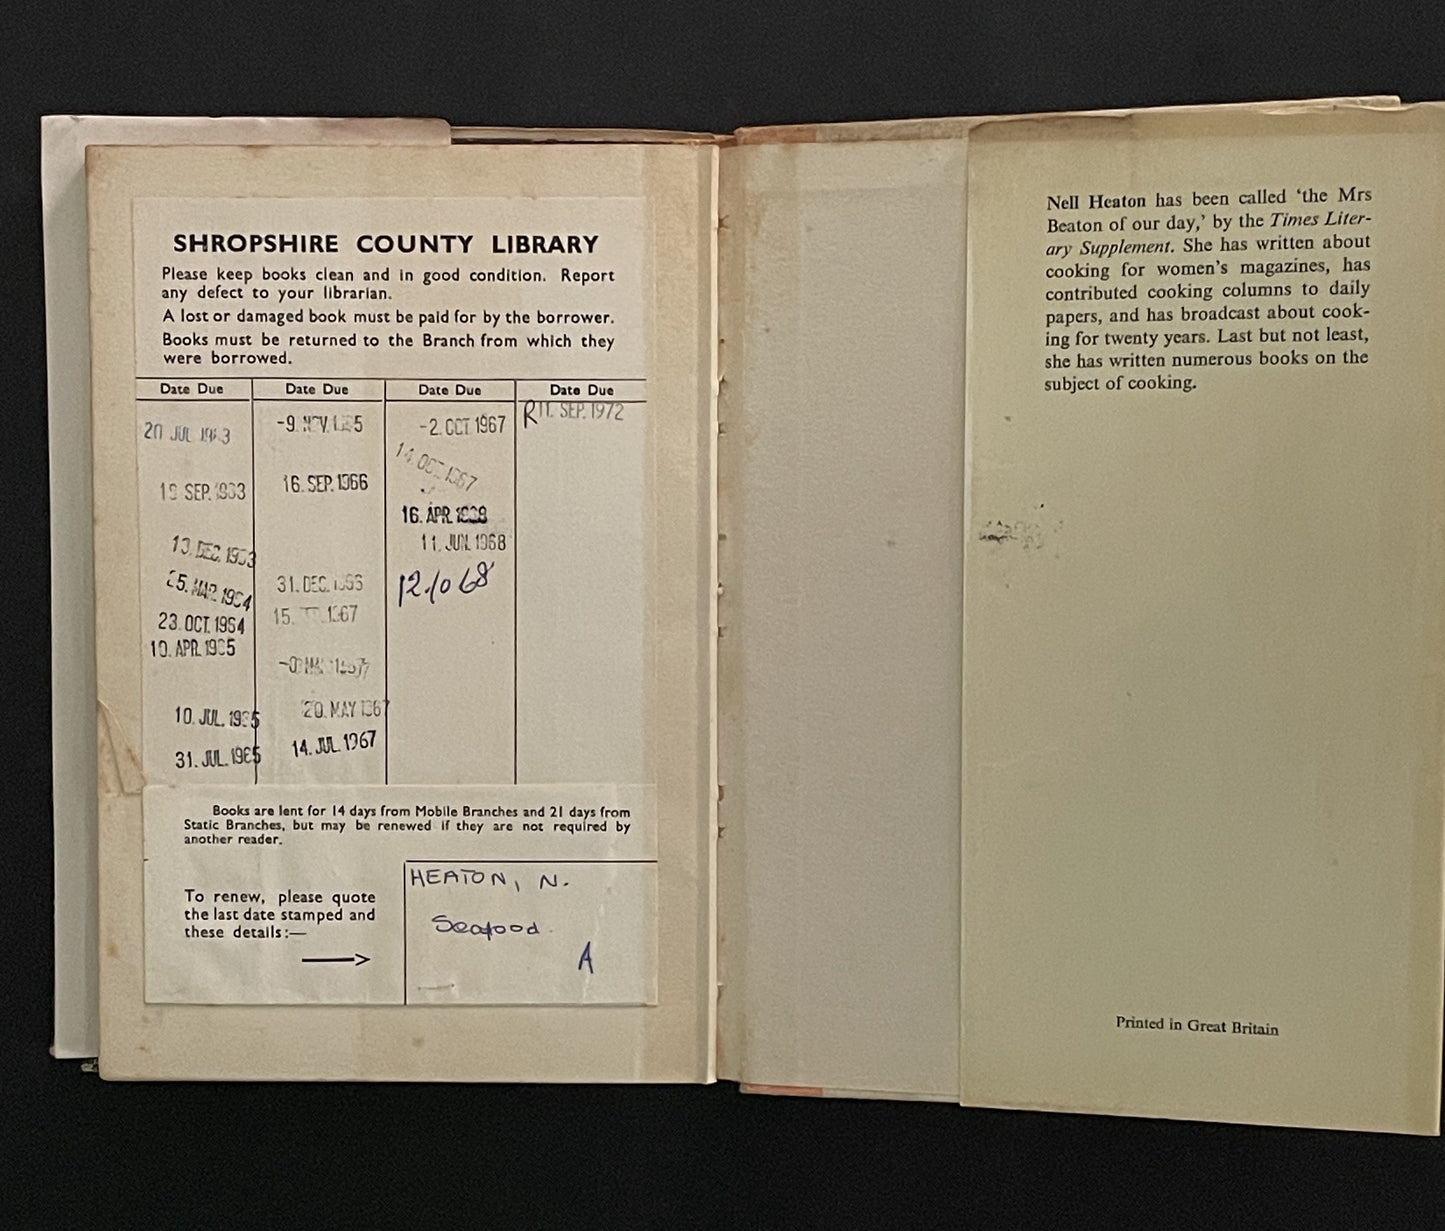 SHROPSHIRE COUNTY LIBRARY
Please keep books clean and in good condition. Report
any defect to your librarian.
A lost or damaged book must be paid for by the borrower.
Books must be returned to the Branch from which they
were borrowed.
Date Due Date Due Date Due Date Due
20 JUL 1963
19 SEP. 1963
13. DEC. 1963
25. MAR. 1964
23. OCT. 1964
10. APR. 1965
10. JUL. 1965
31. JUL. 1965
-9. NOV. 1965
16. SEP. 1966
31. DEC. 1966
15. 1967
1967
20. MAY 1967
14. JUL. 1967
-2. OCT. 1967
14. OCT. 1967
16. APR. 1968
11. JUN. 1968
12.10 68
R 11. SEP. 1972
Books are lent for 14 days from Mobile Branches and 21 days from
Static Branches, but may be renewed if they are not required by
another reader.
To renew, please quote
the last date stamped and
these details:—
HEATON, N.
Seafood.
A
Nell Heaton has been called ‘the Mrs
Beaton of our day,’ by the Times Liter-
ary Supplement. She has written about
cooking for women’s magazines, has
contributed cooking columns to daily
papers, and has broadcast about cook-
ing for twenty years. Last but not least,
she has written numerous books on the
subject of cooking.
Printed in Great Britain